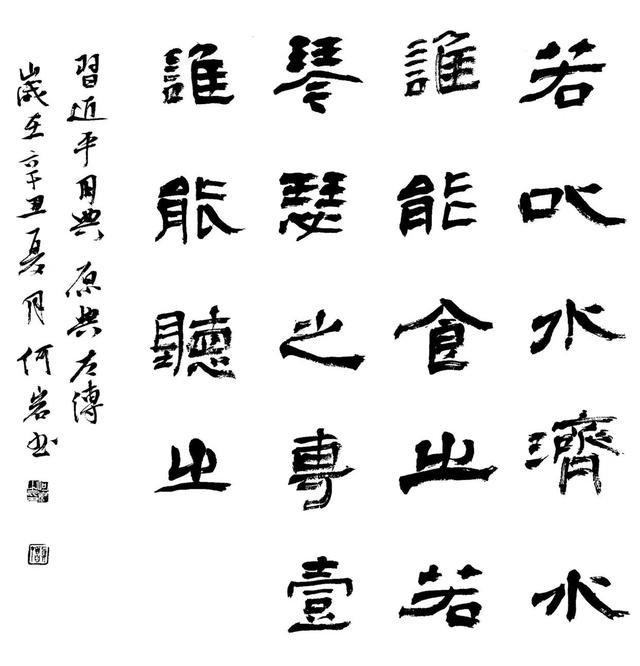 若以水濟水
誰能食之若
琴瑟之專壹
誰能聽之
習近平用典原典左傳
歲在辛丑夏月何岩书